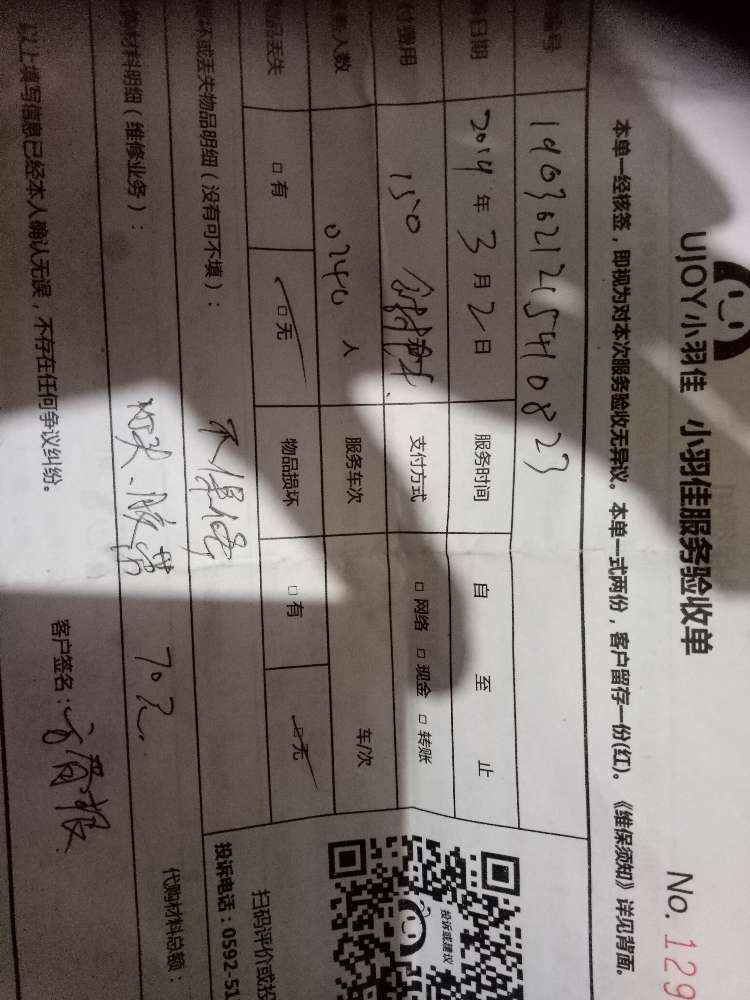 UJOY小羽佳 小羽佳服务验收单
No. 129
本单一经核签，即视为对本次服务验收无异议。本单一式两份，客户留存一份(红)。《维保须知》详见背面。
编号 1903021215410823
日期 2019年3月2日 服务时间 自 至 止
付费用 150 支付方式 □网络 □现金 □转账
人数 0240 人 服务车次 车/次
物品丢失 □有 □无 物品损坏 □有 □无
坏或丢失物品明细（没有可不填）： 不保修
材料明细（维修业务）： 胶带 70元 代购材料总额：
以上填写信息已经本人确认无误，不存在任何争议纠纷。 客户签名：
投诉或建议
扫码评价或投
投诉电话：0592-51